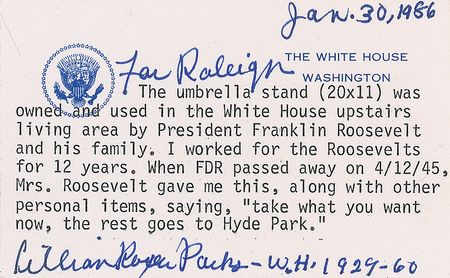 Jan. 30, 1986
For Raleigh
THE WHITE HOUSE
WASHINGTON
The umbrella stand (20x11) was
owned and used in the White House upstairs
living area by President Franklin Roosevelt
and his family. I worked for the Roosevelts
for 12 years. When FDR passed away on 4/12/45,
Mrs. Roosevelt gave me this, along with other
personal items, saying, "take what you want
now, the rest goes to Hyde Park."
Lillian Rogers Parks - W.H. 1929-60